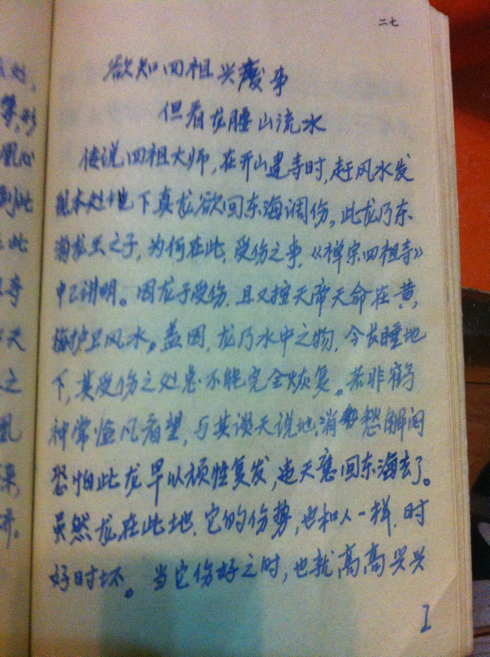 二七
欲知四祖兴废事
但看龙腰山流水
传说四祖大师，在开山建寺时，赶风水发
现本处地下真龙欲回东海调伤。此龙乃东
海龙王之子，为何在此，受伤之事，《禅宗四祖寺》
中已讲明。因龙子受伤，且又接天帝天命在黄
梅护卫风水。盖因，龙乃水中之物，今长睡地
下，其受伤之处总不能完全恢复。若非鹤
神常临凡看望，与其谈天说地，消愁解闷
恐怕此龙早以顽性复发，违天意回东海去了。
虽然龙在此地，它的伤势，也和人一样，时
好时坏。当它伤好之时，也就高高兴兴
处，
形
凤心
到此
此
寺
天
之